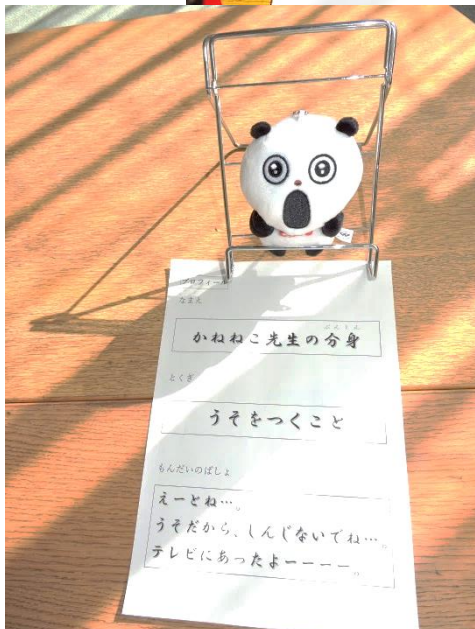 プロフィール
なまえ
ぶんしん
かねねこ先生の分身
とくぎ
うそをつくこと
もんだいのばしょ
えーとね…。
うそだから、しんじないでね…。
テレビにあったよーーーー。